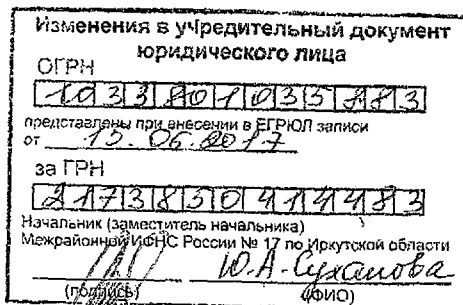 Изменения в учредительный документ
юридического лица
ОГРН
1033801035883
представлены при внесении в ЕГРЮЛ записи
от 15.06.2017
за ГРН
2173850414483
Начальник (заместитель начальника)
Межрайонной ИФНС России № 17 по Иркутской области
Ю.А. Суханова
(подпись) (ФИО)